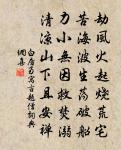 劫風火起燒荒宅
苦海波生蕩破船
力小無因救焚溺
清涼山下且安禪
白居易寓言題僧詞典
網嘉